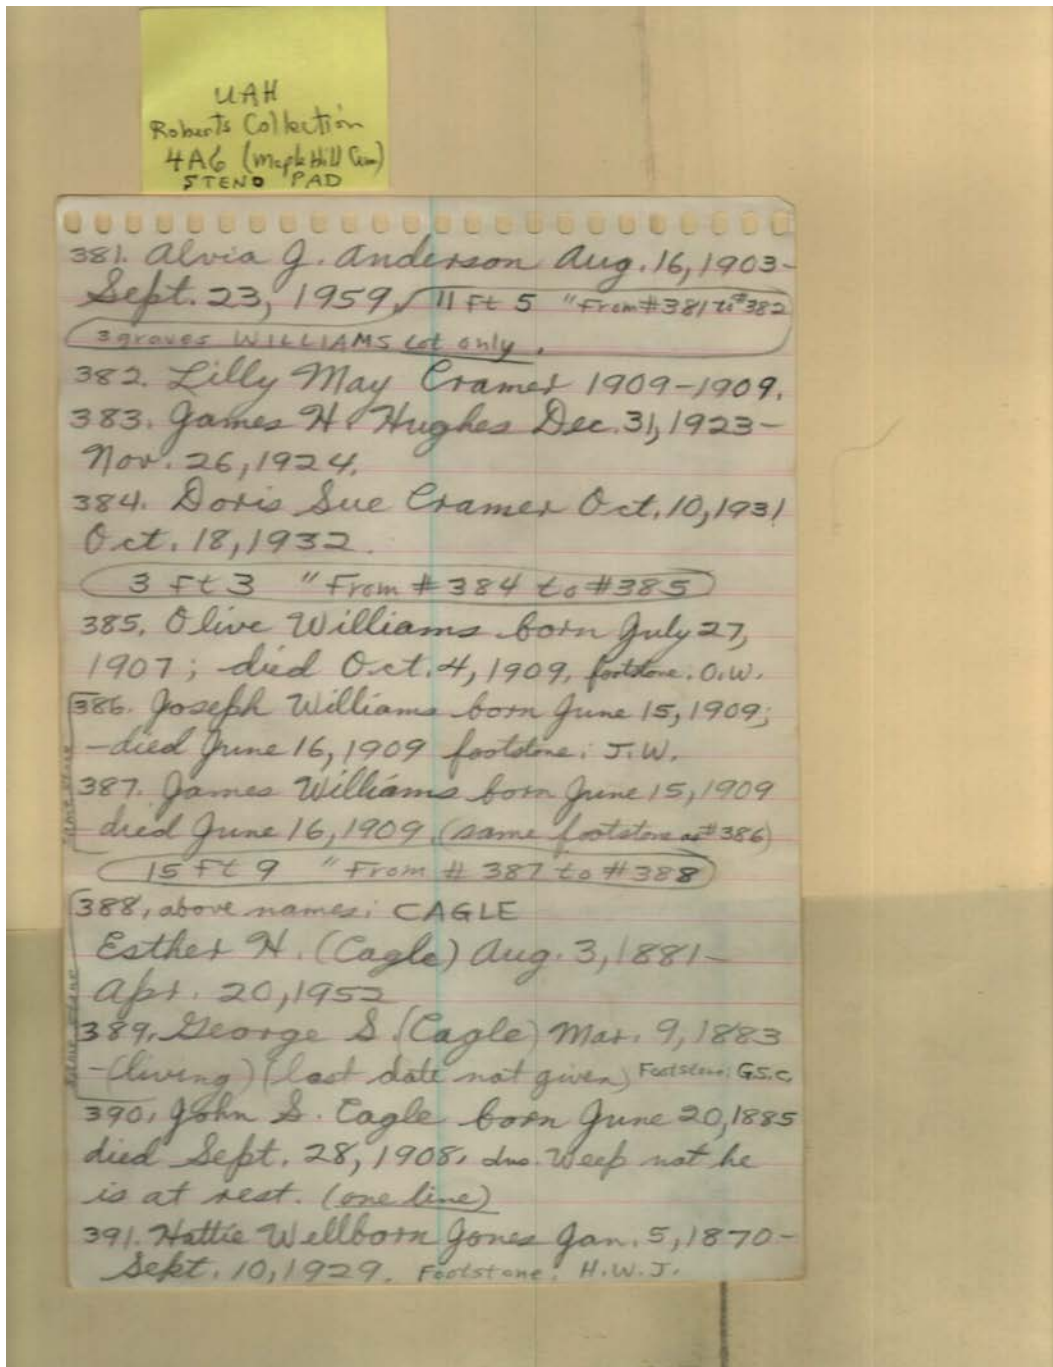 UAH
Roberts Collection
4A6 (Maple Hill Cem)
STENO PAD
381. Alvia J. Anderson Aug. 16, 1903-
Sept. 23, 1959. 11 Ft 5 " From #381 to #382
3 graves WILLIAMS Lot only.
382. Lilly May Cramer 1909-1909.
383. James H. Hughes Dec. 31, 1923-
Nov. 26, 1924.
384. Doris Sue Cramer Oct. 10, 1931
Oct. 18, 1932.
3 Ft 3 " From #384 to #385
385. Olive Williams born July 27,
1907; died Oct. 4, 1909. footstone: O.W.
386. Joseph Williams born June 15, 1909;
-died June 16, 1909 footstone: J.W.
387. James Williams born June 15, 1909
died June 16, 1909 (same footstone as #386)
same stone
15 Ft 9 " From # 387 to #388
388, above names: CAGLE
Esther H. (Cagle) Aug. 3, 1881-
Apr. 20, 1952
389. George S. (Cagle) Mar. 9, 1883
-(living) (last date not given) Footstone: G.S.C.
same stone
390. John S. Cagle born June 20, 1885
died Sept. 28, 1908. Ins. Weep not he
is at rest. (one line)
391. Hattie Wellborn Jones Jan. 5, 1870-
Sept. 10, 1929. Footstone: H.W.J.